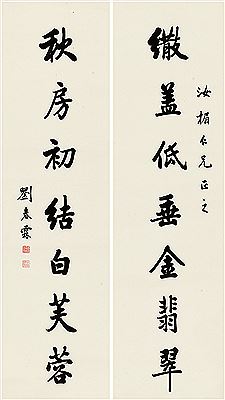 汝楣仁兄正之
繖盖低垂金翡翠
秋房初結白芙蓉
劉春霖